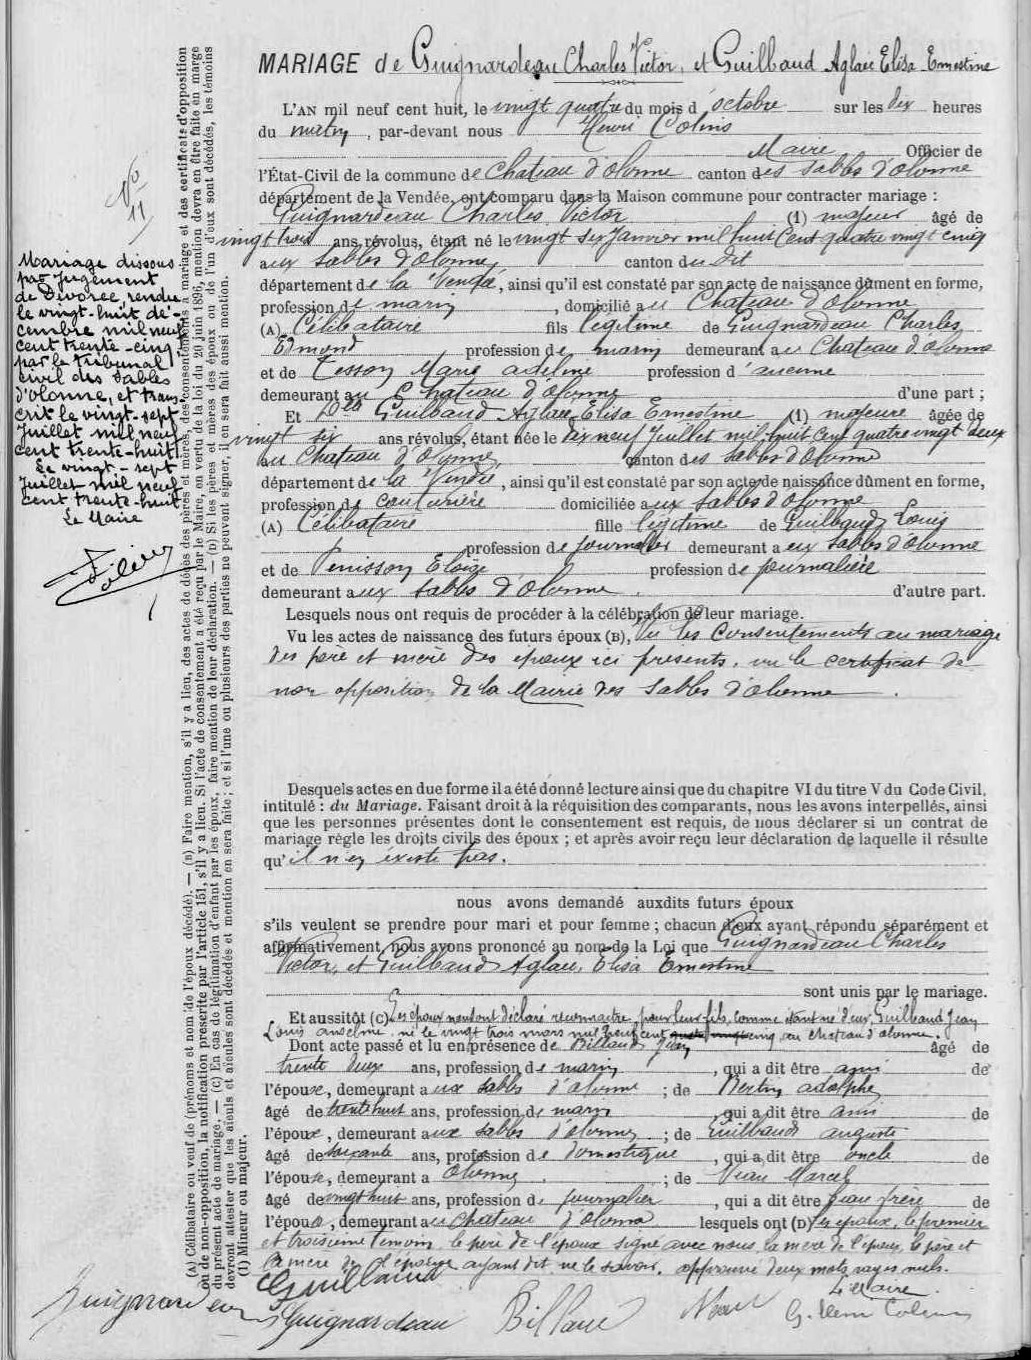 MARIAGE de Guignardeau Charles Victor, et Guilbaud Aglaé Elisa Ernestine
L'AN mil neuf cent huit, le vingt quatre du mois d'octobre sur les dix heures
du matin, par-devant nous Henri Colins
Maire Officier de
l'État-Civil de la commune de Chateau d'Olonne canton des Sables d'Olonne
département de la Vendée, ont comparu dans la Maison commune pour contracter mariage :
Guignardeau Charles Victor (1) majeur âgé de
vingt trois ans révolus, étant né le vingt six Janvier mil huit cent quatre vingt cinq
aux Sables d'Olonne canton du dit
département de la Vendée, ainsi qu'il est constaté par son acte de naissance dûment en forme,
profession de marin, domicilié au Chateau d'Olonne
(A) Célibataire fils légitime de Guignardeau Charles
Edmond profession de marin demeurant au Chateau d'Olonne
et de Tesson Marie adeline profession d'aucune
demeurant au Chateau d'Olonne d'une part ;
Et Dlle Guilbaud Aglaé Elisa Ernestine (1) majeure âgée de
vingt six ans révolus, étant née le dix neuf Juillet mil huit cent quatre vingt deux
au Chateau d'Olonne canton des Sables d'Olonne
département de la Vendée, ainsi qu'il est constaté par son acte de naissance dûment en forme,
profession de couturière domiciliée aux Sables d'Olonne
(A) Célibataire fille légitime de Guilbaud Louis
profession de journalier demeurant aux Sables d'Olonne
et de Penisson Eloïse profession de journalière
demeurant aux Sables d'Olonne. d'autre part.
Lesquels nous ont requis de procéder à la célébration de leur mariage.
Vu les actes de naissance des futurs époux (B), Vu les consentements au mariage
des père et mère des époux ici présents, vu le certificat de
non opposition de la Mairie des Sables d'Olonne.
Desquels actes en due forme il a été donné lecture ainsi que du chapitre VI du titre V du Code Civil,
intitulé : du Mariage. Faisant droit à la réquisition des comparants, nous les avons interpellés, ainsi
que les personnes présentes dont le consentement est requis, de nous déclarer si un contrat de
mariage règle les droits civils des époux ; et après avoir reçu leur déclaration de laquelle il résulte
qu'il n'en existe pas.
nous avons demandé auxdits futurs époux
s'ils veulent se prendre pour mari et pour femme ; chacun d'eux ayant répondu séparément et
affirmativement, nous avons prononcé au nom de la Loi que Guignardeau Charles
Victor, et Guilbaud Aglaé, Elisa Ernestine
sont unis par le mariage.
Et aussitôt (C) Les époux nous ont déclaré reconnaitre pour leur fils, comme étant né d'eux, Guilbaud Jean
Louis anselme, né le vingt trois mars mil neuf cent quatre vingt cinq, au chateau d'olonne.
Dont acte passé et lu en présence de Billaud Jean âgé de
trente deux ans, profession de marin, qui a dit être ami de
l'épouse, demeurant aux Sables d'olonne ; de Bertin adolphe
âgé de trente huit ans, profession de marin, qui a dit être ami de
l'époux, demeurant aux Sables d'olonne ; de Guilbaud auguste
âgé de soixante ans, profession de domestique, qui a dit être oncle de
l'épouse, demeurant a Olonne ; de Viau Marcel
âgé de vingt huit ans, profession de journalier, qui a dit être beau frère de
l'époux, demeurant au Chateau d'olonne lesquels ont (D) les époux, le premier
et troisième témoin, le père de l'époux signé avec nous, la mère de l'époux, le père et
la mère de l'épouse ayant dit ne le savoir. approuvé deux mots rayés nuls.
Le Maire.
Guilbaud
Guignardeau
Guignardeau
Billaud
Viau
Henri Colins
No
11
Mariage dissous
par Jugement
de Divorce, rendu
le vingt-huit dé-
cembre mil neuf
cent trente-cinq
par le tribunal
civil des Sables
d'olonne, et trans-
crit le vingt-sept
Juillet mil neuf
cent trente-huit
Le vingt-sept
Juillet mil neuf
cent trente-huit
Le Maire
(A) Célibataire ou veuf de (prénoms et nom de l'époux décédé). — (B) Faire mention, s'il y a lieu, des actes de décès des pères et mères, des consentements à mariage et des certificats d'opposition
ou de non-opposition, la notification prescrite par l'article 151, s'il y a lieu. Si l'acte de consentement a été reçu par le Maire, en vertu de la loi du 20 juin 1896, mention devra en être faite en marge
du présent acte de mariage. — (C) En cas de légitimation d'enfant par les époux, faire mention de leur déclaration. — (D) Si les pères et mères des époux ou de l'un d'eux sont décédés, les témoins
devront attester que les aïeuls et aïeules sont décédés et mention en sera faite ; et si l'une ou plusieurs des parties ne peuvent signer, il en sera fait aussi mention.
(1) Mineur ou majeur.